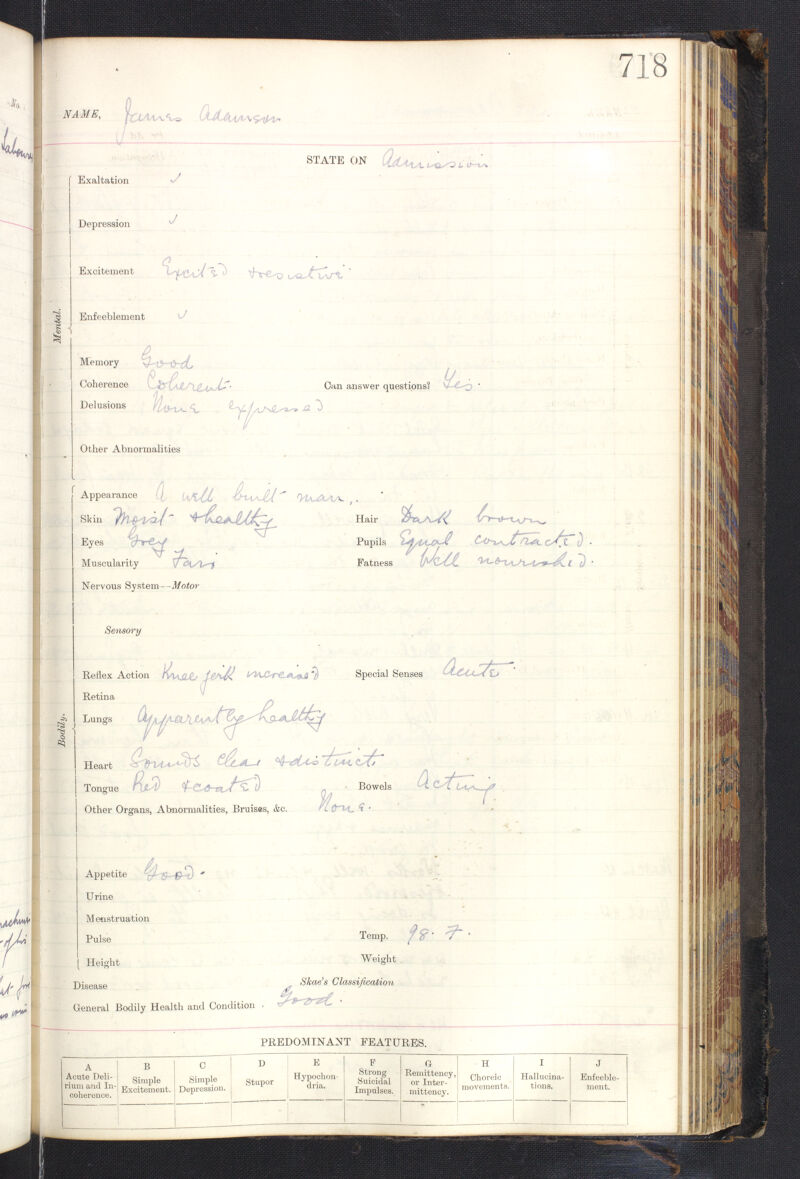 718
NAME, James Adamson
STATE ON Admission
Mental.
Exaltation ✓
Depression ✓
Excitement Excited & resistive
Enfeeblement ✓
Memory Good
Coherence Coherent. Can answer questions? Yes.
Delusions None expressed
Other Abnormalities
Bodily.
Appearance A well built man.
Skin Moist & healthy Hair Dark brown
Eyes Grey Pupils Equal contracted.
Muscularity Fair Fatness Well nourished.
Nervous System—Motor
Sensory
Reflex Action Knee jerk increased Special Senses Acute.
Retina
Lungs Apparently healthy
Heart Sounds clear & distinct
Tongue Red & coated Bowels Acting.
Other Organs, Abnormalities, Bruises, &c. None.
Appetite Good.
Urine
Menstruation
Pulse Temp. 98. F.
Height Weight
Disease Skae's Classification
General Bodily Health and Condition . Good.
PREDOMINANT FEATURES.
A Acute Delirium and Incoherence.
B Simple Excitement.
C Simple Depression.
D Stupor
E Hypochondria.
F Strong Suicidal Impulses.
G Remittency, or Intermittency.
H Choreic movements.
I Hallucinations.
J Enfeeblement.